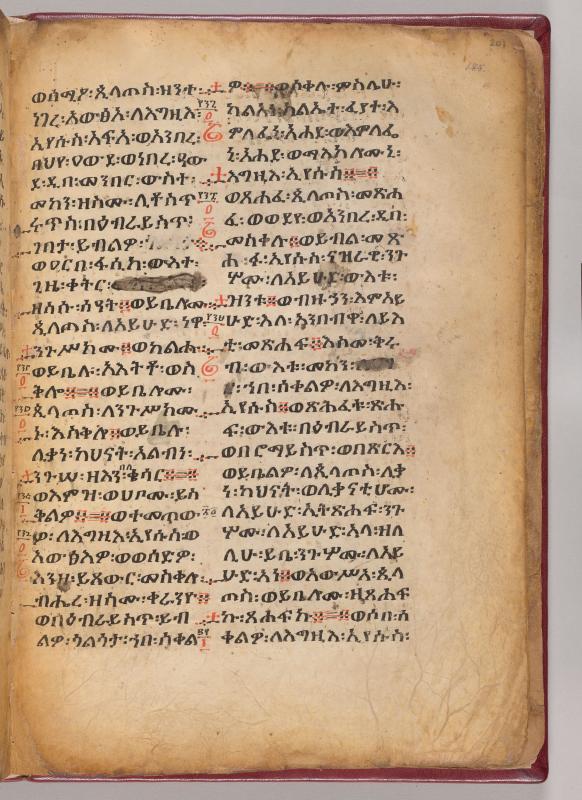 ወሰሚዖ፡ጲላጦስ፡ዘንተ፡
ነገረ፡አውፅአ፡ለእግዚእ፡
ኢየሱስ፡አፍአ፡ወአንበረ፡
ጸህየ፡ዐውደ፡ወነበረ፡
ደ፡ዲበ፡መንበር፡ውስተ፡
መከን፡ዘስሙ፡ሊቶስጥ
ሩጥስ፡በዕብራይስጥ፡
ገበታ፡ይብልዎ፡
ወዐርበ፡ፋሲካ፡ውእቱ፡
ጊዜ፡ቀትር፡
ዘሰሱ፡ሰዓት፡ወይቤሎሙ
ጲላጦስ፡ለአይሁድ፡ነዋ
ንጉሥክሙ፡ወከልሑ፡
ወይቤሉ፡አእትቶ፡ወስ
ቅሎ፡ወይቤሎሙ፡
ጲላጦስ፡ለንጉሥክሙ
ኑ፡እስቅሎ፡ወይቤሉ፡
ሊቃነ፡ካህናት፡አልብነ፡
ንጉሠ፡ዘእንበለ፡ቄሳር፡
ወእምዝ፡ወሀቦሙ፡ይስ
ቅልዎ፡ወተመጠው
ዎ፡ለእግዚእ፡ኢየሱስ፡ወ
አውፅእዎ፡ወወሰድዎ፡
እንዘ፡ይጸውር፡መስቀሉ፡
ብሔረ፡ዘስሙ፡ቀራንዮ
ወበዕብራይስጥ፡ይብ
ልዎ፡ጎልጎታ፡ኀበ፡ሰቀል
ዎ፡ወሰቀሉ፡ምስሌሁ፡
ካልኣነ፡ክልኤተ፡ፈያተ፡አ
ምለፌ፡አሐደ፡ወእምለፌ
ኒ፡አሐደ፡ወማእከሎሙኒ፡
እግዚእ፡ኢየሱስ፡
ወጸሐፈ፡ጲላጦስ፡መጽሐ
ፈ፡ወወደየ፡ወአንበረ፡ዲበ፡
መስቀሉ፡ወይብል፡መጽ
ሐፉ፡ኢየሱስ፡ናዝራዊ፡ንጉ
ሦሙ፡ለአይሁድ፡ውእቱ፡
ዝንቱ፡ወብዙኃን፡እምአይ
ሁድ፡እለ፡አንበብዋ፡ለይእ
ቲ፡መጽሐፍ፡እስመ፡ቅሩ
ብ፡ውእቱ፡መከን፡
ኀበ፡ሰቀልዎ፡ለእግዚእ፡
ኢየሱስ፡ወጽሕፈቱ፡ጽሑ
ፍ፡ውእቱ፡በዕብራይስጥ፡
ወበሮማይስጥ፡ወበጽርእ
ወይቤልዎ፡ለጲላጦስ፡ሊቃ
ነ፡ካህናት፡ወሊቃናቲሆሙ፡
ለአይሁድ፡ኢትጽሐፍ፡ንጉ
ሦሙ፡ለአይሁድ፡አላ፡ዘለ
ሊሁ፡ይቤ፡ንጉሦሙ፡ለአይ
ሁድ፡አነ፡ወአውሥአ፡ጲላ
ጦስ፡ወይቤሎሙ፡ዘጸሐፍ
ኩ፡ጸሐፍኩ፡ወሶበ፡ሰ
ቀልዎ፡ለእግዚእ፡ኢየሱስ፡